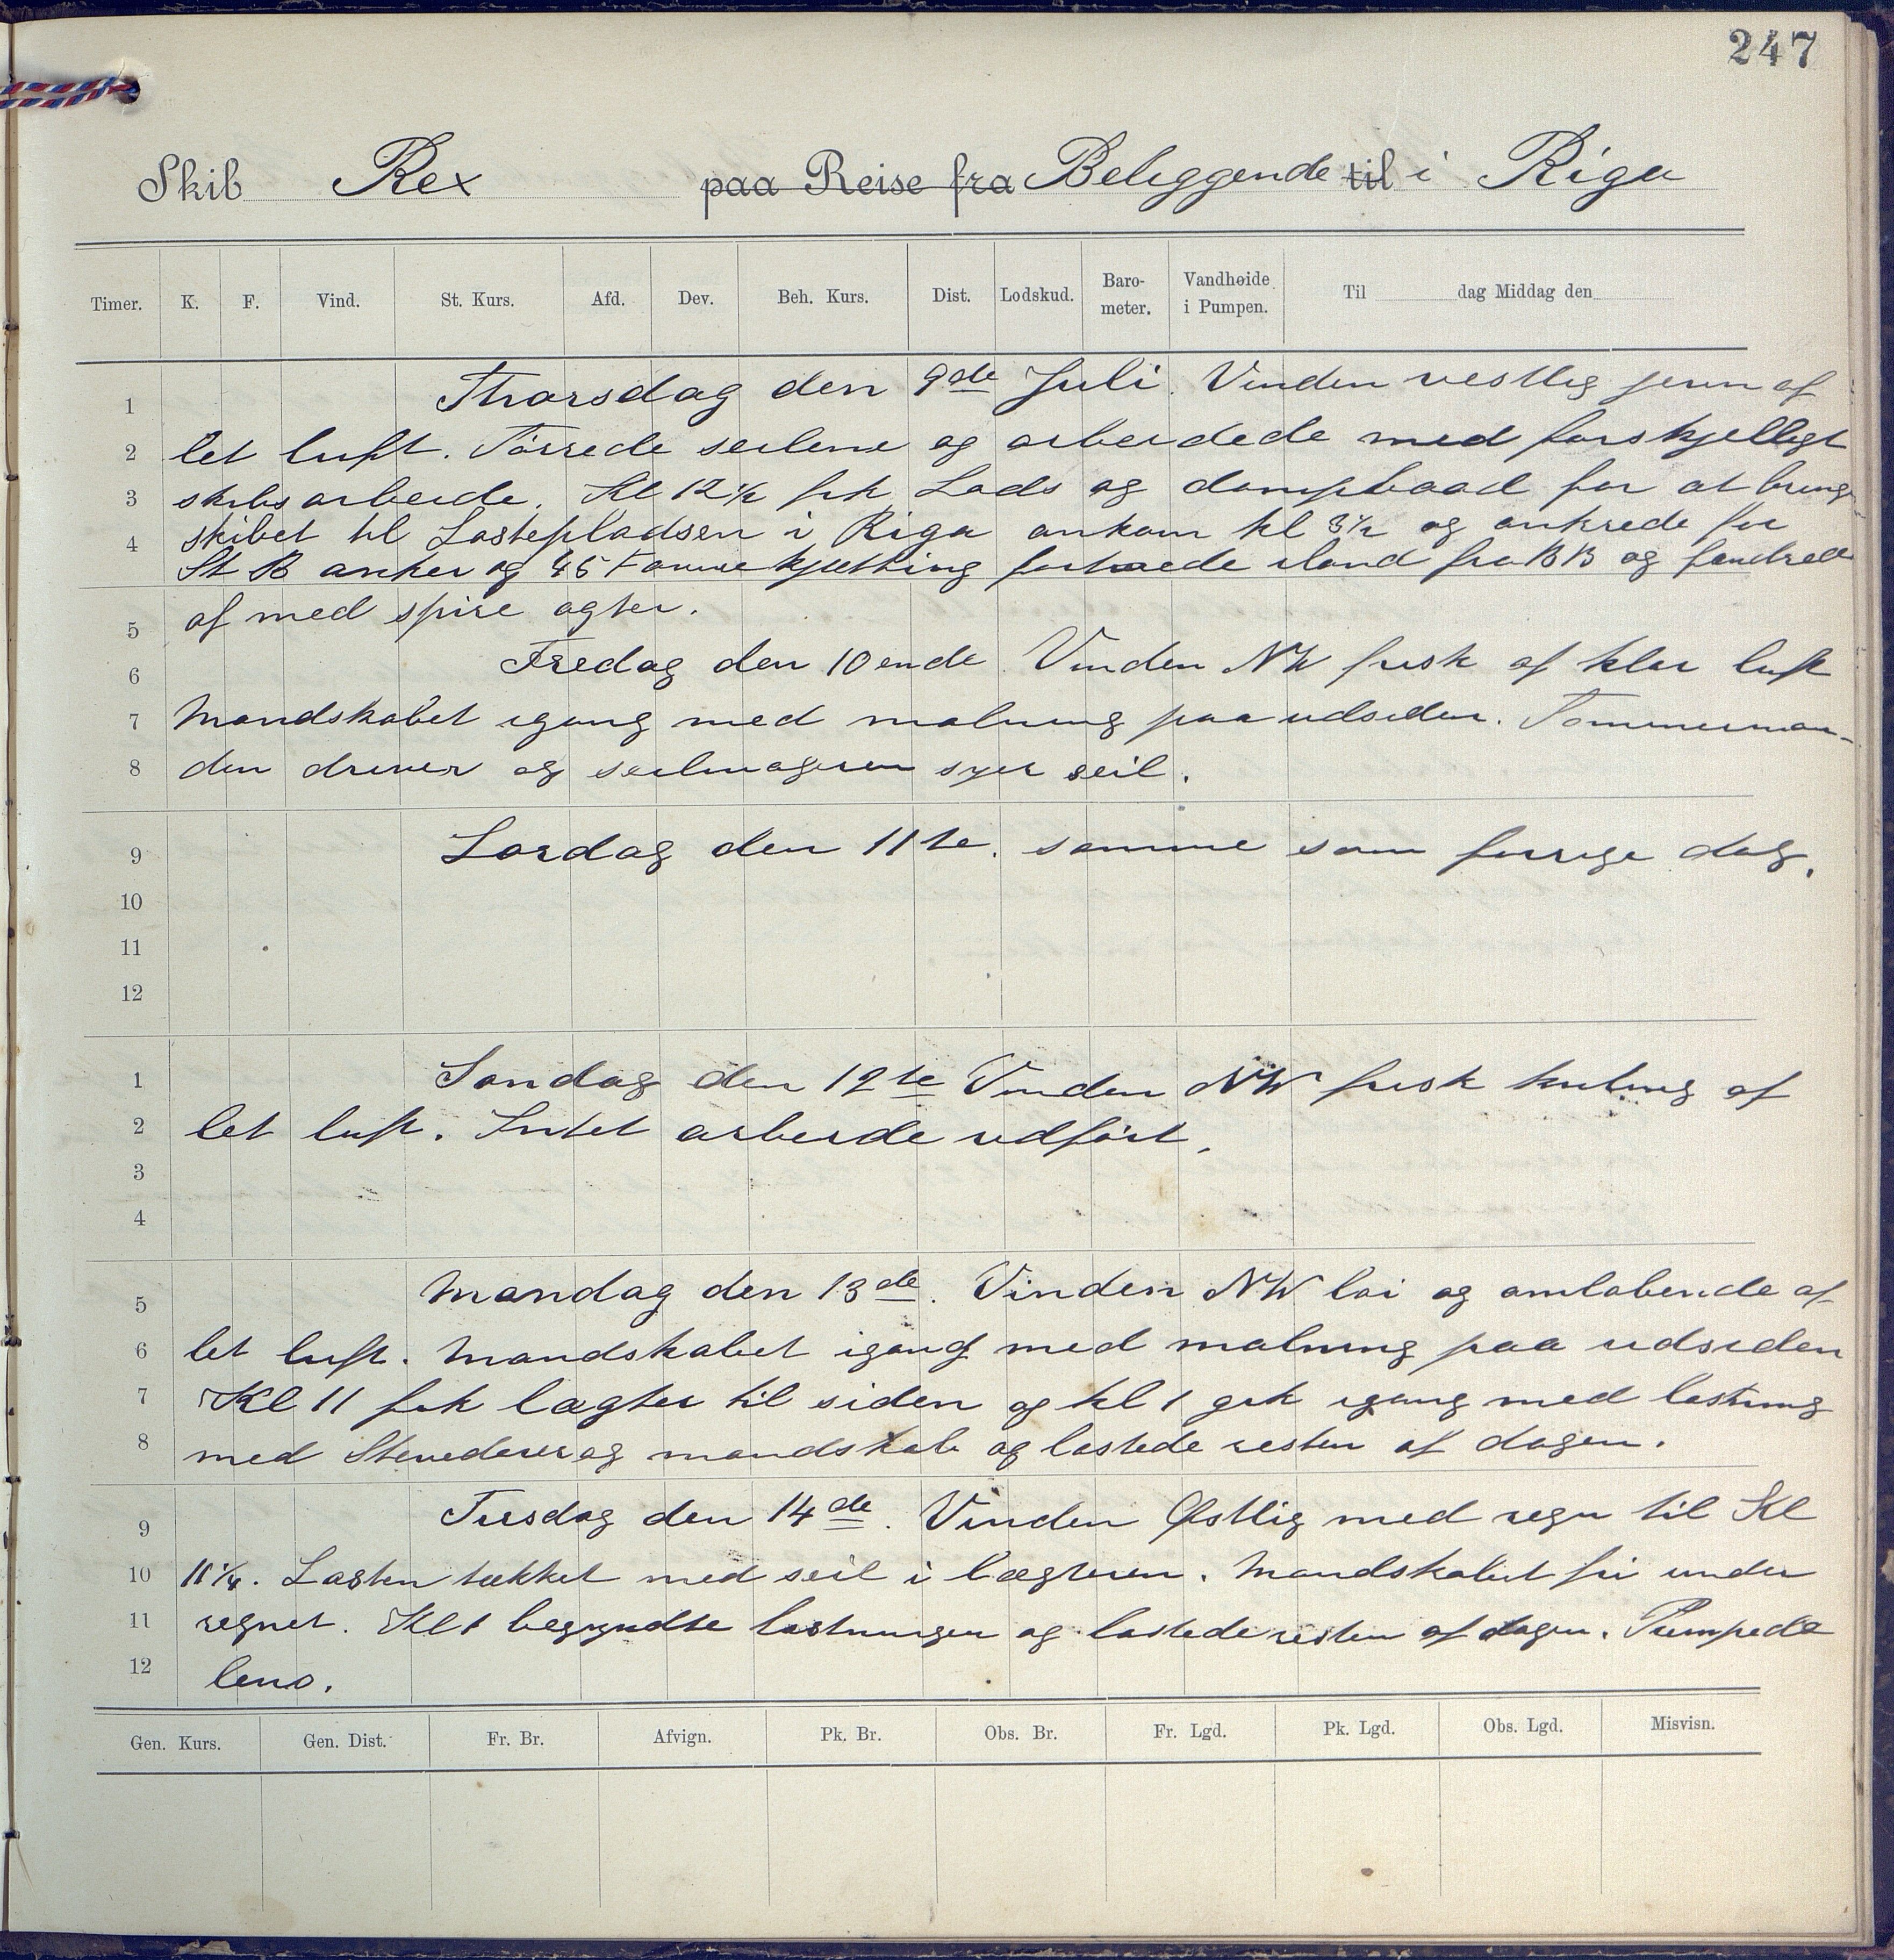 247
Skib Rex paa Reise fra Beliggende til i Riga
Timer. K. F. Vind. St. Kurs. Afd. Dev. Beh. Kurs. Dist. Lodskud. Baro-meter. Vandhøide i Pumpen. Til dag Middag den
1 Thorsdag den 9de Juli. Vinden vestlig jevn af
2 let luft. Tørrede seilene og arbeidede med forskjelligt
3 skibsarbeide. Kl 12½ fik Lods og dampbaad for at bringe
4 skibet til Lastepladsen i Riga ankom kl 3½ og ankrede for
St B anker og 45 Favne kjetting fortøiede iland fra BB og
5 af med spire agter.
6 Fredag den 10ende Vinden NW frisk af klar luft
7 Mandskabet igang med malning paa udsiden. Tømmerman-
8 den driver og seilmageren syer seil.
9 Lørdag den 11te. samme som forrige dag.
10
11
12
1 Søndag den 12te Vinden NW frisk kuling af
2 let luft. Intet arbeide udført.
3
4
5 Mandag den 13de. Vinden NW løi og omløbende af
6 let luft. Mandskabet igang med malning paa udsiden
7 Kl 11 fik lægter til siden og kl 1 gik igang med lastning
8 med Stevedorer og mandskab og lastede resten af dagen.
9 Tirsdag den 14de. Vinden Østlig med regn til Kl
10 11¼. Lasten tækket med seil i lægteren. Mandskabet fri under
11 regnet. Kl 1 begyndte lastningen og lastede resten af dagen. Pumpede
12 lens.
Gen. Kurs. Gen. Dist. Fr. Br. Afvign. Pk. Br. Obs. Br. Fr. Lgd. Pk. Lgd. Obs. Lgd. Misvisn.